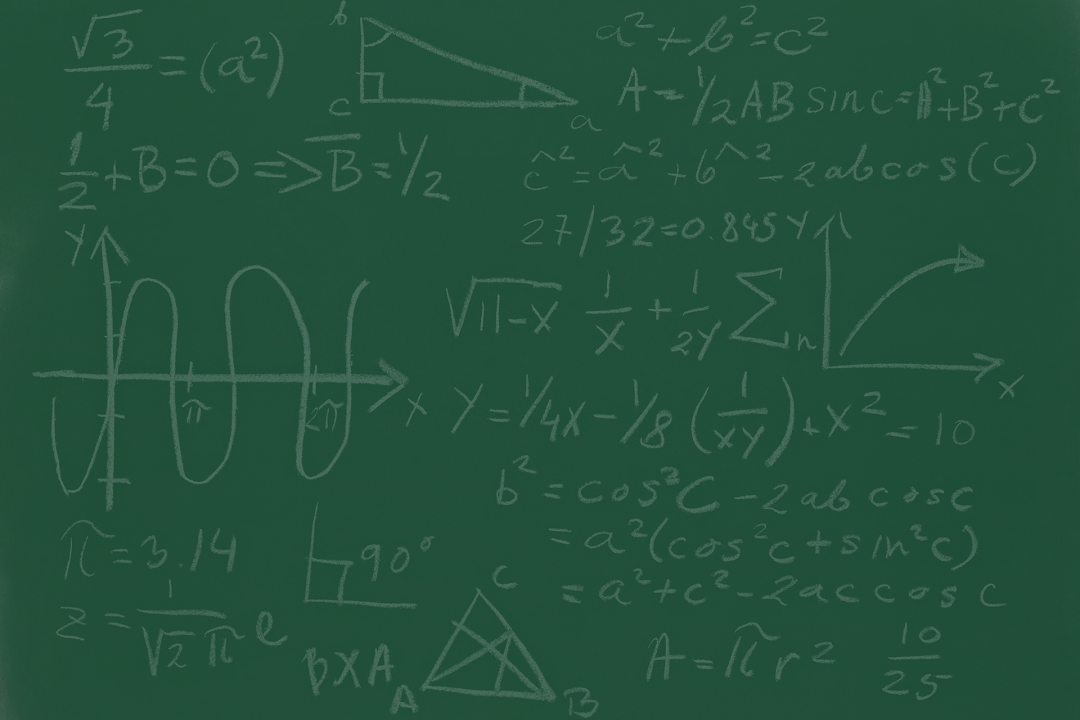 √3/4 = (a²)
b
c
a
a² + b² = c²
A = 1/2 AB sin c = A² + B² + C²
1/2 + B = 0 => B̅ = 1/2
c^² = a^² + b^² - 2ab cos (c)
27/32 = 0.845
Y
π
2π
X
√11-X
1/X + 1/2Y
Σn
Y
X
Y = 1/4X - 1/8 (1/XY) + X² = 10
b² = cos²C - 2ab cosc
= a²(cos²c + sin²c)
= a² + c² - 2ac cos c
π = 3.14
90°
z = 1/√2π e
BXA
C
A
B
A = πr²
10/25